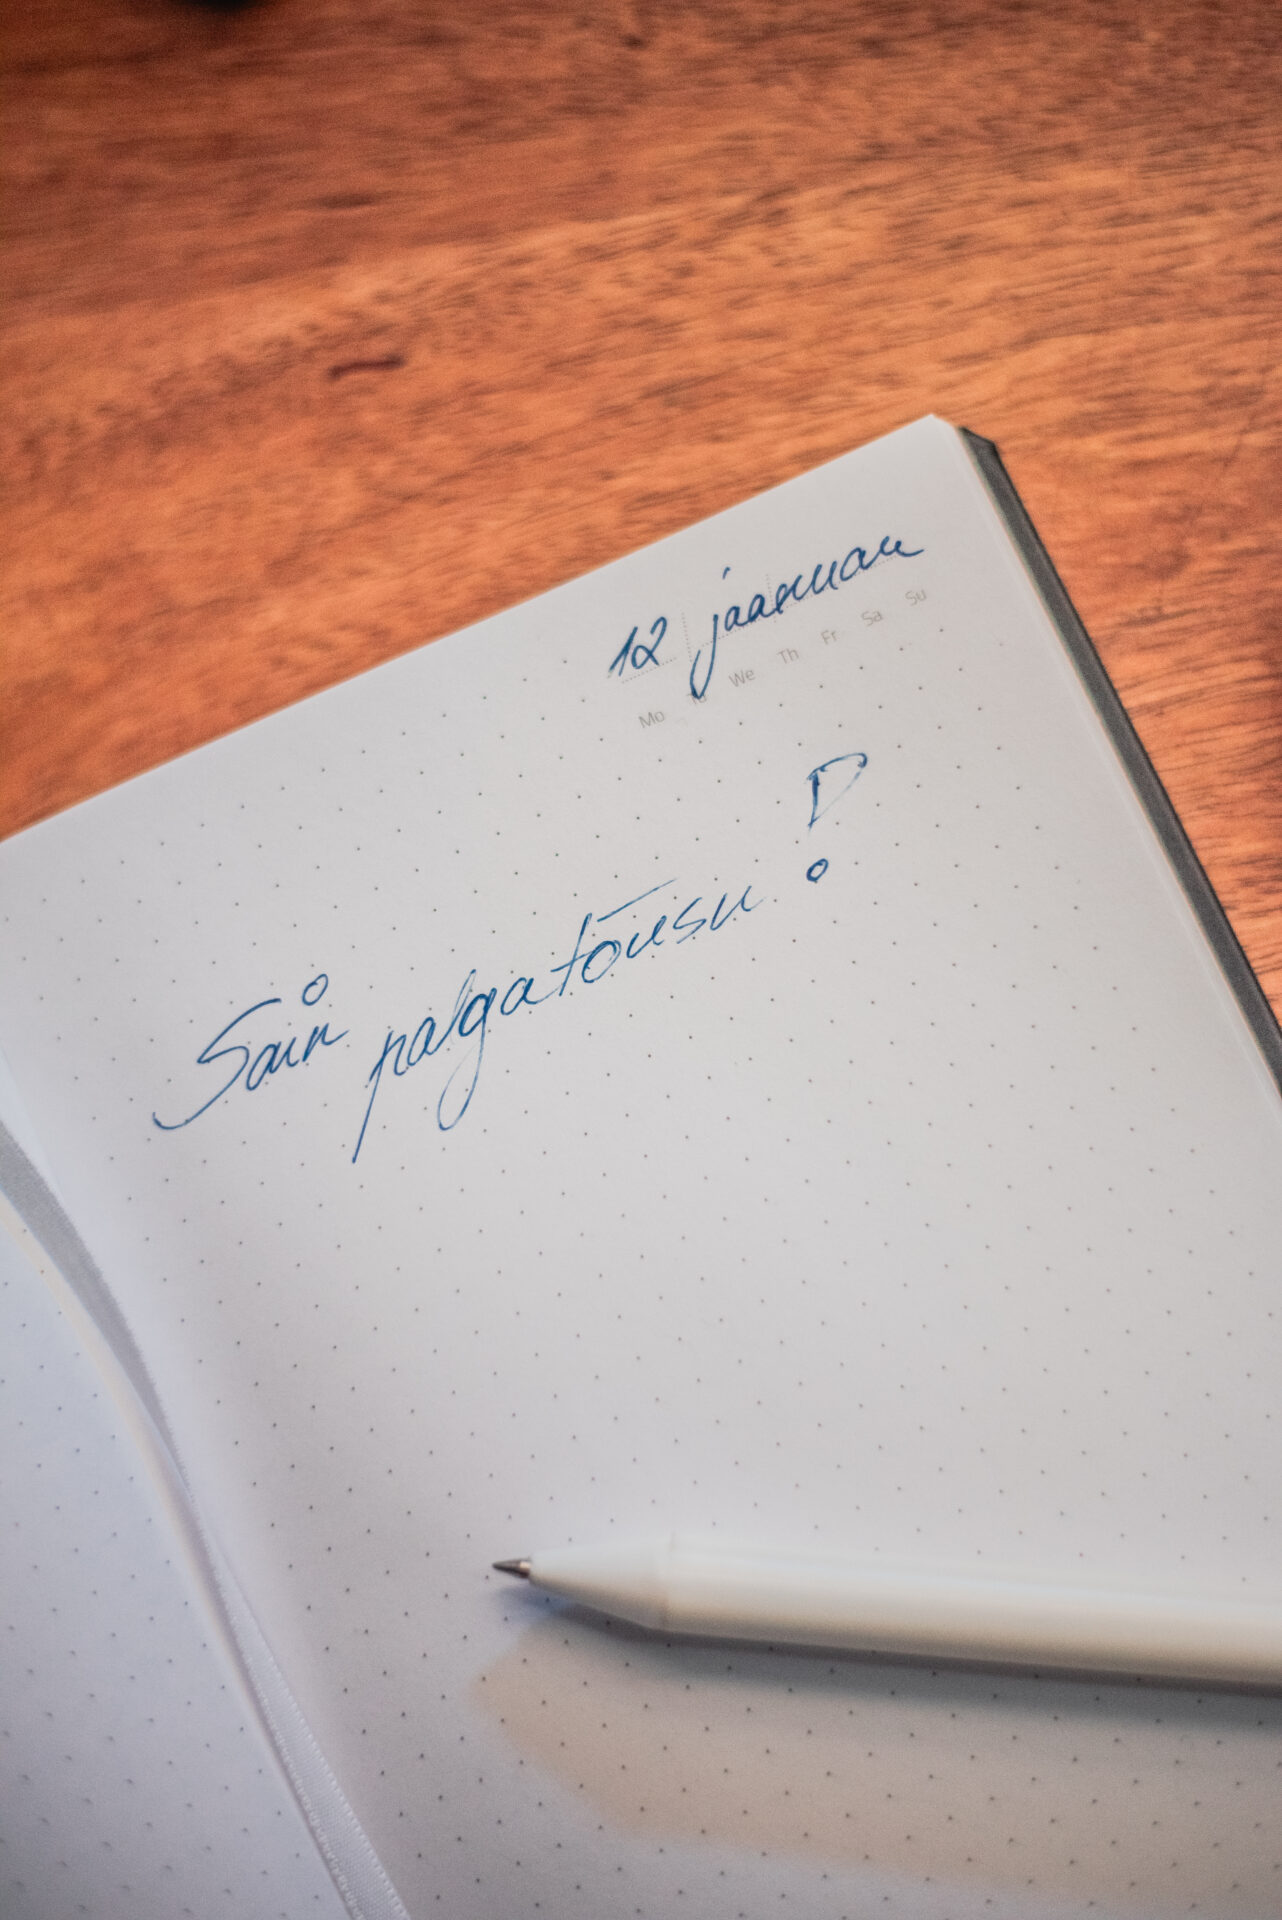 12 jaanuar
Mo Tu We Th Fr Sa Su
Sain palgatõusu!